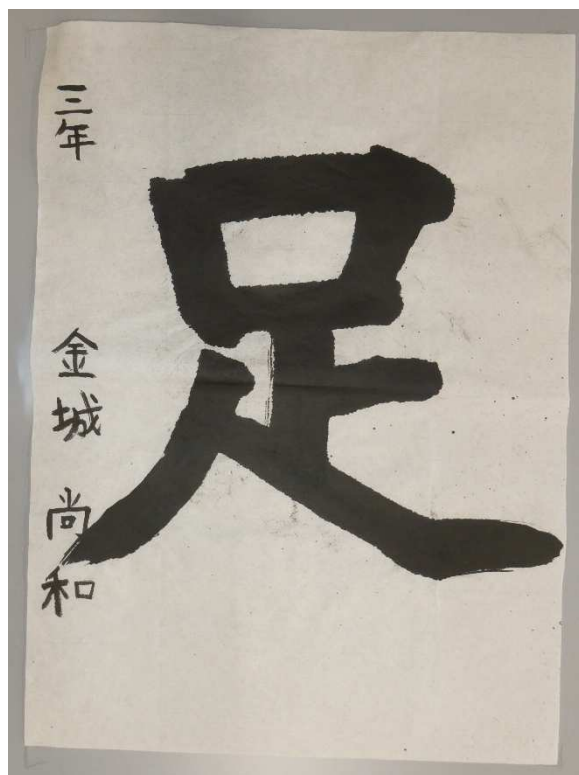 足
三年 金城 尚和